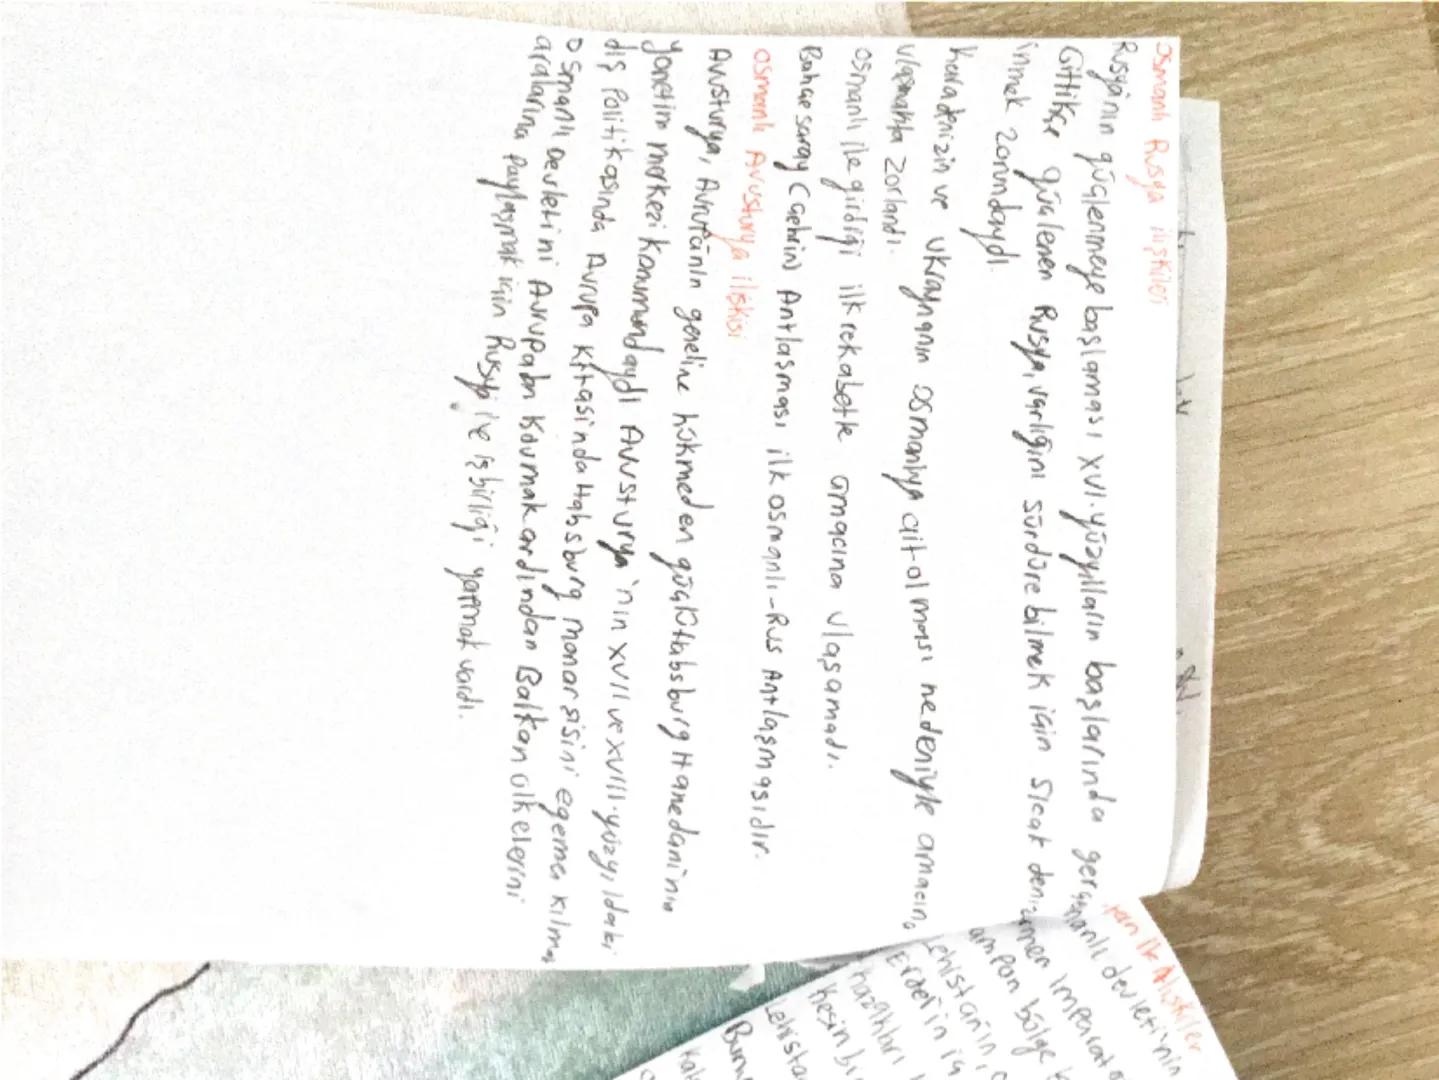 Osmanlı Rusya ilişkileri
Rusya'nın güçlenmeye başlaması XVI. yüzyılların başlarında
Gittikçe güçlenen Rusya, varlığını sürdürebilmek için sıcak
inmek zorundaydı.
Karadenizin ve Ukraynanın Osmanlıya ait olması nedeniyle amacına
ulaşmakta zorlandı.
Osmanlı ile girdiği ilk rekabette amacına ulaşamadı.
Bahçesaray (Çehrin) Antlaşması ilk osmanlı-Rus Antlaşmasıdır.
Osmanlı Avusturya ilişkisi
Avusturya, Avrupanın geneline hükmeden güçlü Habsburg Hanedanı'nın
yönetim merkezi konumundaydı Avusturya'nın XVII ve XVIII. yüzyıldaki
dış Politikasında Avrupa kıtasında Habsburg monarşisini egemen kılmak
Osmanlı Devletini Avrupadan Kovmak ardından Balkan ülkelerini
aralarına paylaşmak için Rusya ile işbirliği yapmak vardı.
ilk ilişkiler
devleti'nin
tampon bölge
Lehistan'ın,
Erdel'in iç
Kesin bi